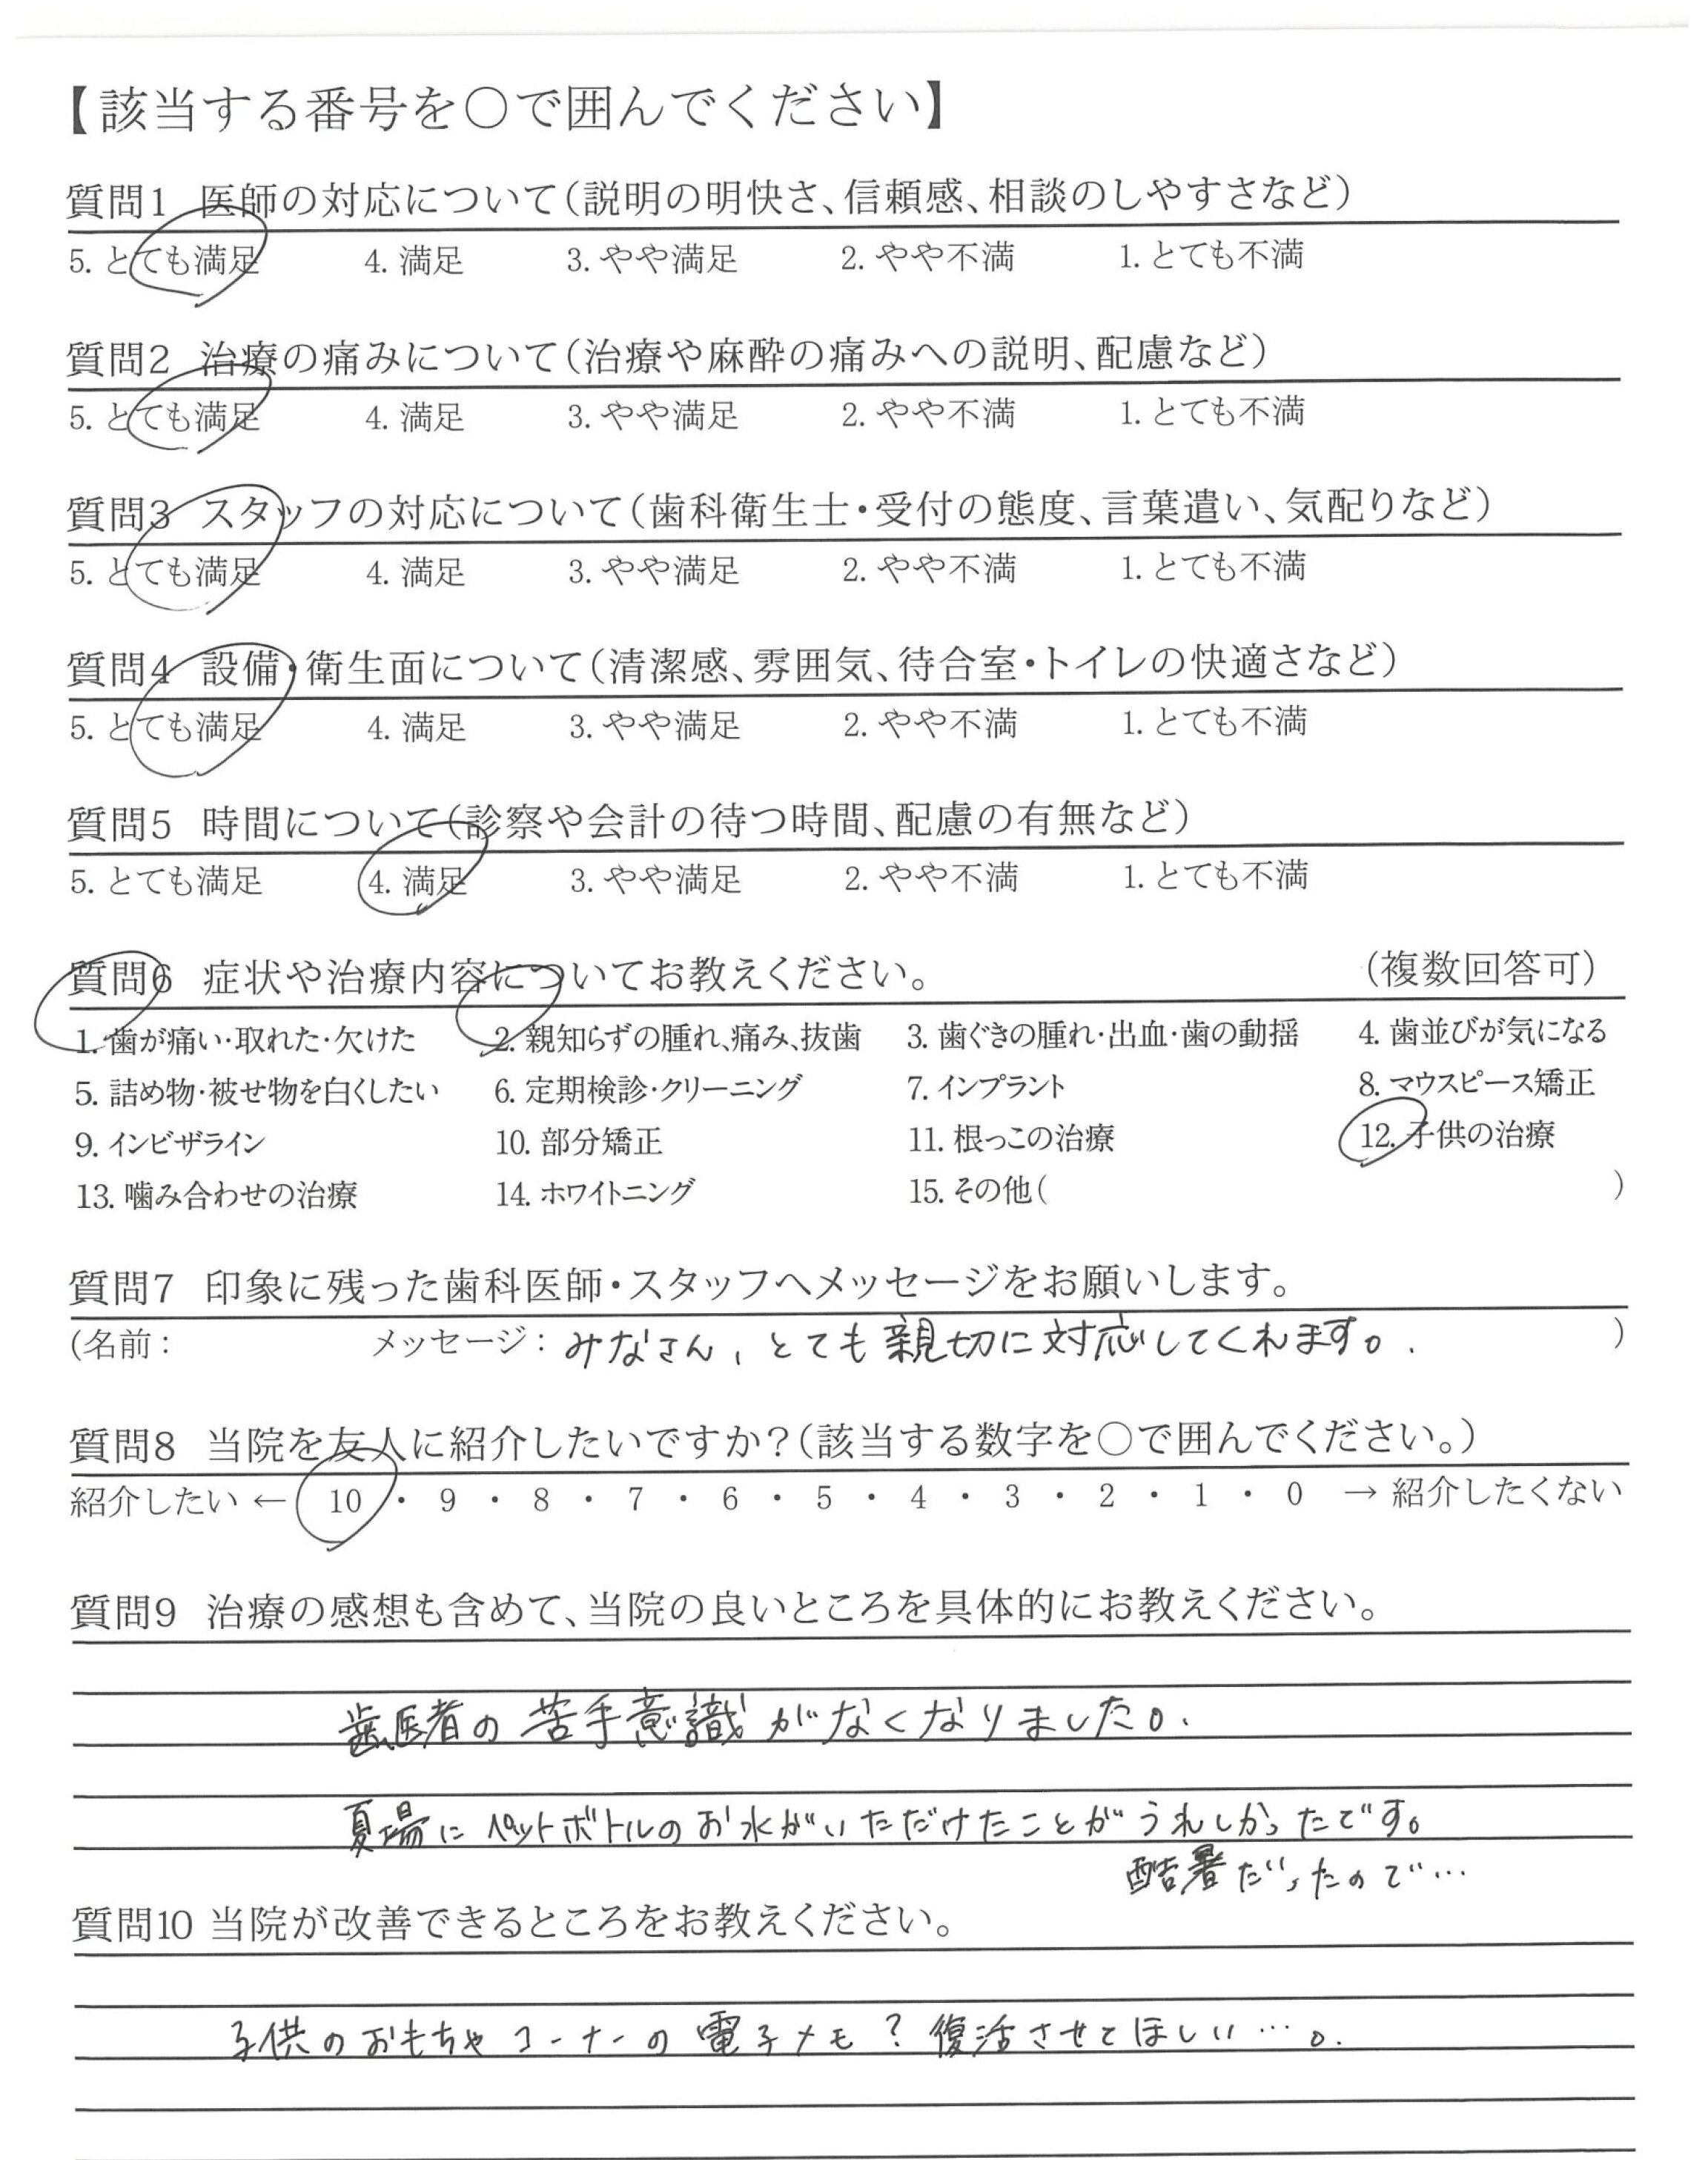 【該当する番号を○で囲んでください】
質問1 医師の対応について(説明の明快さ、信頼感、相談のしやすさなど)
5. とても満足 4. 満足 3. やや満足 2. やや不満 1. とても不満
質問2 治療の痛みについて(治療や麻酔の痛みへの説明、配慮など)
5. とても満足 4. 満足 3. やや満足 2. やや不満 1. とても不満
質問3 スタッフの対応について(歯科衛生士・受付の態度、言葉遣い、気配りなど)
5. とても満足 4. 満足 3. やや満足 2. やや不満 1. とても不満
質問4 設備・衛生面について(清潔感、雰囲気、待合室・トイレの快適さなど)
5. とても満足 4. 満足 3. やや満足 2. やや不満 1. とても不満
質問5 時間について(診察や会計の待つ時間、配慮の有無など)
5. とても満足 4. 満足 3. やや満足 2. やや不満 1. とても不満
質問6 症状や治療内容についてお教えください。 (複数回答可)
1. 歯が痛い・取れた・欠けた 2. 親知らずの腫れ、痛み、抜歯 3. 歯ぐきの腫れ・出血・歯の動揺 4. 歯並びが気になる
5. 詰め物・被せ物を白くしたい 6. 定期検診・クリーニング 7. インプラント 8. マウスピース矯正
9. インビザライン 10. 部分矯正 11. 根っこの治療 12. 子供の治療
13. 噛み合わせの治療 14. ホワイトニング 15. その他( )
質問7 印象に残った歯科医師・スタッフへメッセージをお願いします。
(名前: メッセージ: みなさん、とても親切に対応してくれます。 )
質問8 当院を友人に紹介したいですか?(該当する数字を○で囲んでください。)
紹介したい ← 10 ・ 9 ・ 8 ・ 7 ・ 6 ・ 5 ・ 4 ・ 3 ・ 2 ・ 1 ・ 0 → 紹介したくない
質問9 治療の感想も含めて、当院の良いところを具体的にお教えください。
歯医者の苦手意識がなくなりました。
夏場にペットボトルのお水がいただけたことがうれしかったです。
酷暑だったので…
質問10 当院が改善できるところをお教えください。
子供のおもちゃコーナーの電子メモ?復活させてほしい…。